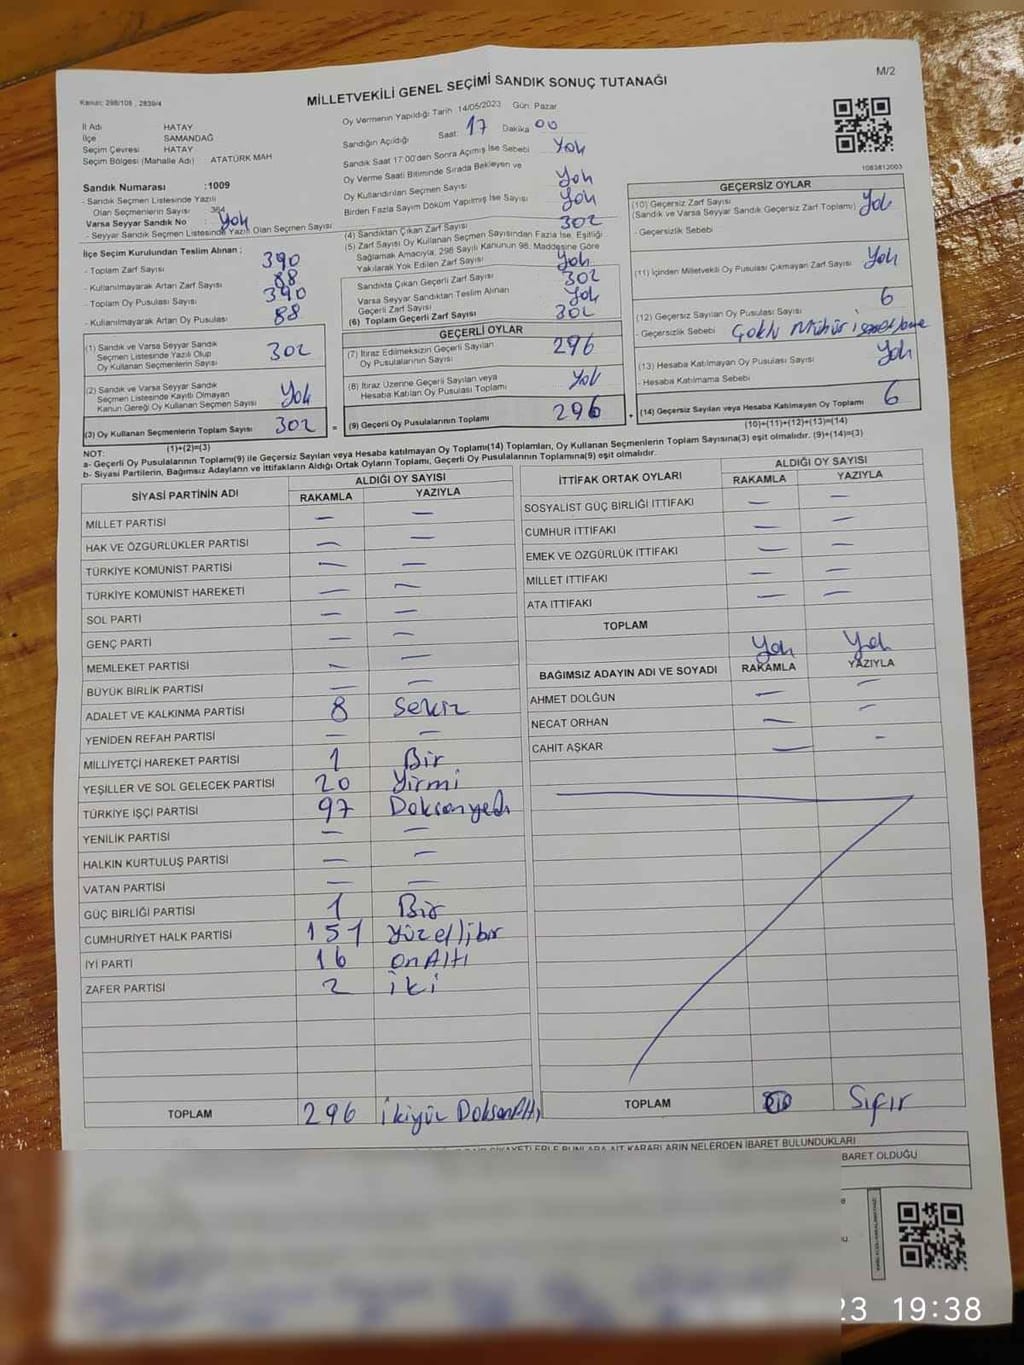 Kanun: 298/108 , 2839/4
MİLLETVEKİLİ GENEL SEÇİMİ SANDIK SONUÇ TUTANAĞI
M/2
İl Adı HATAY
İlçe SAMANDAĞ
Seçim Çevresi HATAY
Seçim Bölgesi (Mahalle Adı) ATATÜRK MAH
Sandık Numarası :1009
- Sandık Seçmen Listesinde Yazılı
Olan Seçmenlerin Sayısı 364
Varsa Seyyar Sandık No : Yok
- Seyyar Sandık Seçmen Listesinde Yazılı Olan Seçmen Sayısı
İlçe Seçim Kurulundan Teslim Alınan :
- Toplam Zarf Sayısı 390
- Kullanılmayarak Artan Zarf Sayısı 88
- Toplam Oy Pusulası Sayısı 390
- Kullanılmayarak Artan Oy Pusulası 88
(1) Sandık ve Varsa Seyyar Sandık
Seçmen Listesinde Yazılı Olup
Oy Kullanan Seçmenlerin Sayısı 302
(2) Sandık ve Varsa Seyyar Sandık
Seçmen Listesinde Kayıtlı Olmayan
Kanun Gereği Oy Kullanan Seçmen Sayısı Yok
(3) Oy Kullanan Seçmenlerin Toplam Sayısı 302
(1)+(2)=(3)
Oy Vermenin Yapıldığı Tarih 14/05/2023 Gün: Pazar
Sandığın Açıldığı Saat: 17 Dakika 00
Sandık Saat 17:00'den Sonra Açılmış İse Sebebi Yok
Oy Verme Saati Bitiminde Sırada Bekleyen ve
Oy Kullandırılan Seçmen Sayısı Yok
Birden Fazla Sayım Döküm Yapılmış İse Sayısı Yok
(4) Sandıktan Çıkan Zarf Sayısı 302
(5) Zarf Sayısı Oy Kullanan Seçmen Sayısından Fazla İse, Eşitliği
Sağlamak Amacıyla, 298 Sayılı Kanunun 98. Maddesine Göre
Yakılarak Yok Edilen Zarf Sayısı Yok
Sandıkta Çıkan Geçerli Zarf Sayısı 302
Varsa Seyyar Sandıktan Teslim Alınan
Geçerli Zarf Sayısı Yok
(6) Toplam Geçerli Zarf Sayısı 302
GEÇERLİ OYLAR
(7) İtiraz Edilmeksizin Geçerli Sayılan
Oy Pusulalarının Sayısı 296
(8) İtiraz Üzerine Geçerli Sayılan veya
Hesaba Katılan Oy Pusulası Toplamı Yok
= (9) Geçerli Oy Pusulalarının Toplamı 296 +
1083812003
GEÇERSİZ OYLAR
(10) Geçersiz Zarf Sayısı
(Sandık ve Varsa Seyyar Sandık Geçersiz Zarf Toplamı) Yok
- Geçersizlik Sebebi
(11) İçinden Milletvekili Oy Pusulası Çıkmayan Zarf Sayısı Yok
(12) Geçersiz Sayılan Oy Pusulası Sayısı 6
- Geçersizlik Sebebi Çoklu Mühür
(13) Hesaba Katılmayan Oy Pusulası Sayısı Yok
- Hesaba Katılmama Sebebi
(14) Geçersiz Sayılan veya Hesaba Katılmayan Oy Toplamı 6
(10)+(11)+(12)+(13)=(14)
NOT:
a- Geçerli Oy Pusulalarının Toplamı(9) ile Geçersiz Sayılan veya Hesaba katılmayan Oy Toplamı(14) Toplamları, Oy Kullanan Seçmenlerin Toplam Sayısına(3) eşit olmalıdır. (9)+(14)=(3)
b- Siyasi Partilerin, Bağımsız Adayların ve İttifakların Aldığı Ortak Oyların Toplamı, Geçerli Oy Pusulalarının Toplamına(9) eşit olmalıdır.
SİYASİ PARTİNİN ADI
ALDIĞI OY SAYISI
RAKAMLA YAZIYLA
MİLLET PARTİSİ — —
HAK VE ÖZGÜRLÜKLER PARTİSİ — —
TÜRKİYE KOMÜNİST PARTİSİ — —
TÜRKİYE KOMÜNİST HAREKETİ — —
SOL PARTİ — —
GENÇ PARTİ — —
MEMLEKET PARTİSİ — —
BÜYÜK BİRLİK PARTİSİ — —
ADALET VE KALKINMA PARTİSİ 8 Sekiz
YENİDEN REFAH PARTİSİ — —
MİLLİYETÇİ HAREKET PARTİSİ 1 Bir
YEŞİLLER VE SOL GELECEK PARTİSİ 20 Yirmi
TÜRKİYE İŞÇİ PARTİSİ 97 Doksanyedi
YENİLİK PARTİSİ — —
HALKIN KURTULUŞ PARTİSİ — —
VATAN PARTİSİ — —
GÜÇ BİRLİĞİ PARTİSİ 1 Bir
CUMHURİYET HALK PARTİSİ 151 Yüzellibir
İYİ PARTİ 16 onAltı
ZAFER PARTİSİ 2 iki
TOPLAM 296 ikiyüz DoksanAltı
İTTİFAK ORTAK OYLARI
ALDIĞI OY SAYISI
RAKAMLA YAZIYLA
SOSYALİST GÜÇ BİRLİĞİ İTTİFAKI — —
CUMHUR İTTİFAKI — —
EMEK VE ÖZGÜRLÜK İTTİFAKI — —
MİLLET İTTİFAKI — —
ATA İTTİFAKI — —
TOPLAM Yok Yok
BAĞIMSIZ ADAYIN ADI VE SOYADI RAKAMLA YAZIYLA
AHMET DOLĞUN — —
NECAT ORHAN — —
CAHİT AŞKAR — —
TOPLAM Sıfır
AİT KARARLARIN NELERDEN İBARET BULUNDUKLARI
İBARET OLDUĞU
23 19:38